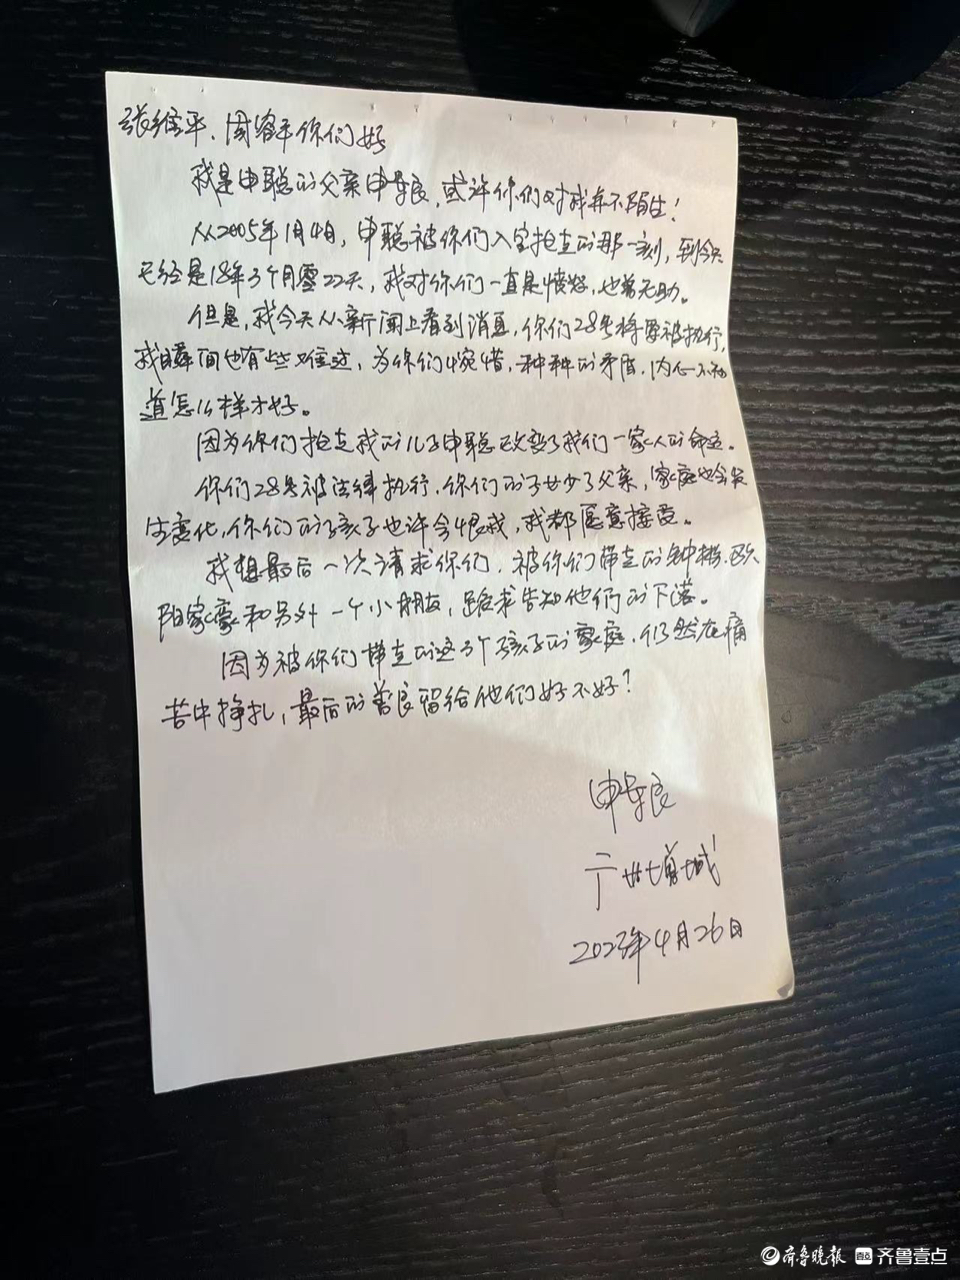 张维平、周容平你们好
我是申聪的父亲申军良,或许你们对我并不陌生!
从2005年1月4日,申聪被你们入室抢走的那一刻,到今天
已经是18年3个月零22天,我对你们一直是愤怒,也曾无助。
但是,我今天从新闻上看到消息,你们28号将要被执行,
我瞬间也有些难过,为你们惋惜,种种的矛盾,内心不知
道怎么样才好。
因为你们抢走我的儿子申聪改变了我们一家人的命运。
你们28号被法律执行,你们的子女少了父亲,家庭也会发
生变化,你们的孩子也许会恨我,我都愿意接受。
我想最后一次请求你们,被你们带走的钟彬、欧
阳家豪和另外一个小朋友,跪求告知他们的下落。
因为被你们带走的这3个孩子的家庭,仍然在痛
苦中挣扎,最后的善良留给他们好不好?
申军良
广州增城
2023年4月26日
齐鲁晚报 齐鲁壹点